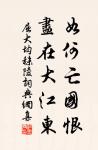 如何亡國恨
盡在大江東
屈大均秣陵詞典網喜